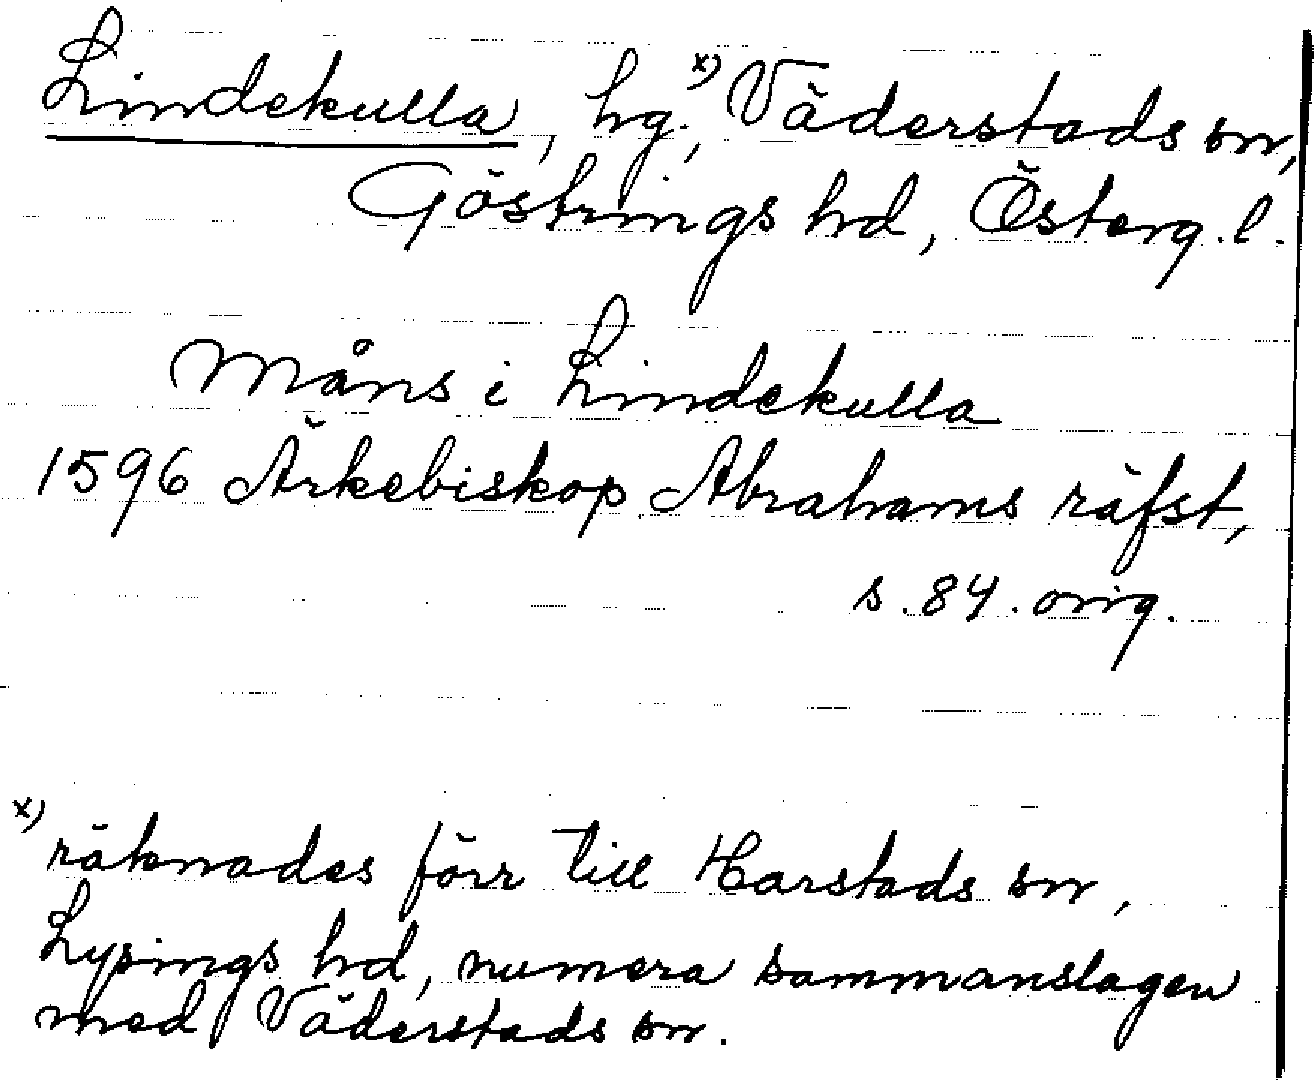 Lindekulla, hg,x) Väderstads sn,
Göstrings hd, Österg. l.
Måns i Lindekulla
1596 Ärkebiskop Abrahams räfst,
s. 84. orig.
x) räknades förr till Harstads sn,
Lysings hd, numera sammanslagen
med Väderstads sn.